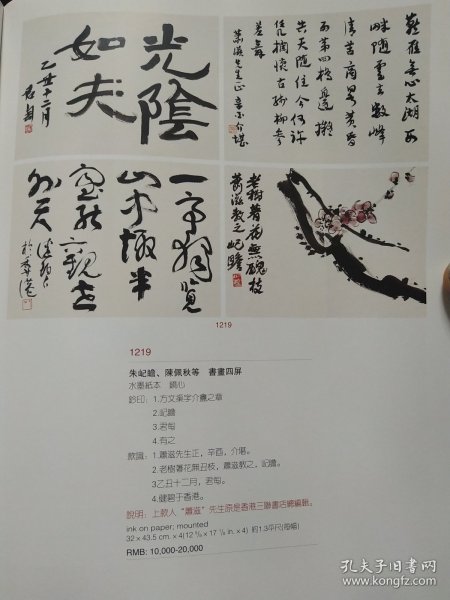 光陰
如夫
乙丑十二月
君匋
燕雁無心太湖西
畔隨雲去數峰
清苦商略黃昏
雨第四橋邊擬
共天隨住今何許
憑欄懷古殘柳參
差舞
蕭滋先生正 辛酉介堪
老樹著花無醜枝
蕭滋教之 屺瞻
於香港
1219
1219
朱屺瞻、陳佩秋等 書畫四屏
水墨紙本 鏡心
2.屺瞻
3.君匋
4.有之
款識：1.蕭滋先生正，辛酉，介堪。
2.老樹著花無丑枝，蕭滋教之，屺瞻。
3乙丑十二月，君匋。
4.健碧于香港。
說明：上款人“蕭滋”先生原是香港三聯書店總編輯。
ink on paper; mounted
32 x 43.5 cm. x 4(12 5/8 x 17 1/8 in. x 4) 約1.3平尺(每幅)
RMB: 10,000-20,000
孔夫子旧书网
www.kongfz.com